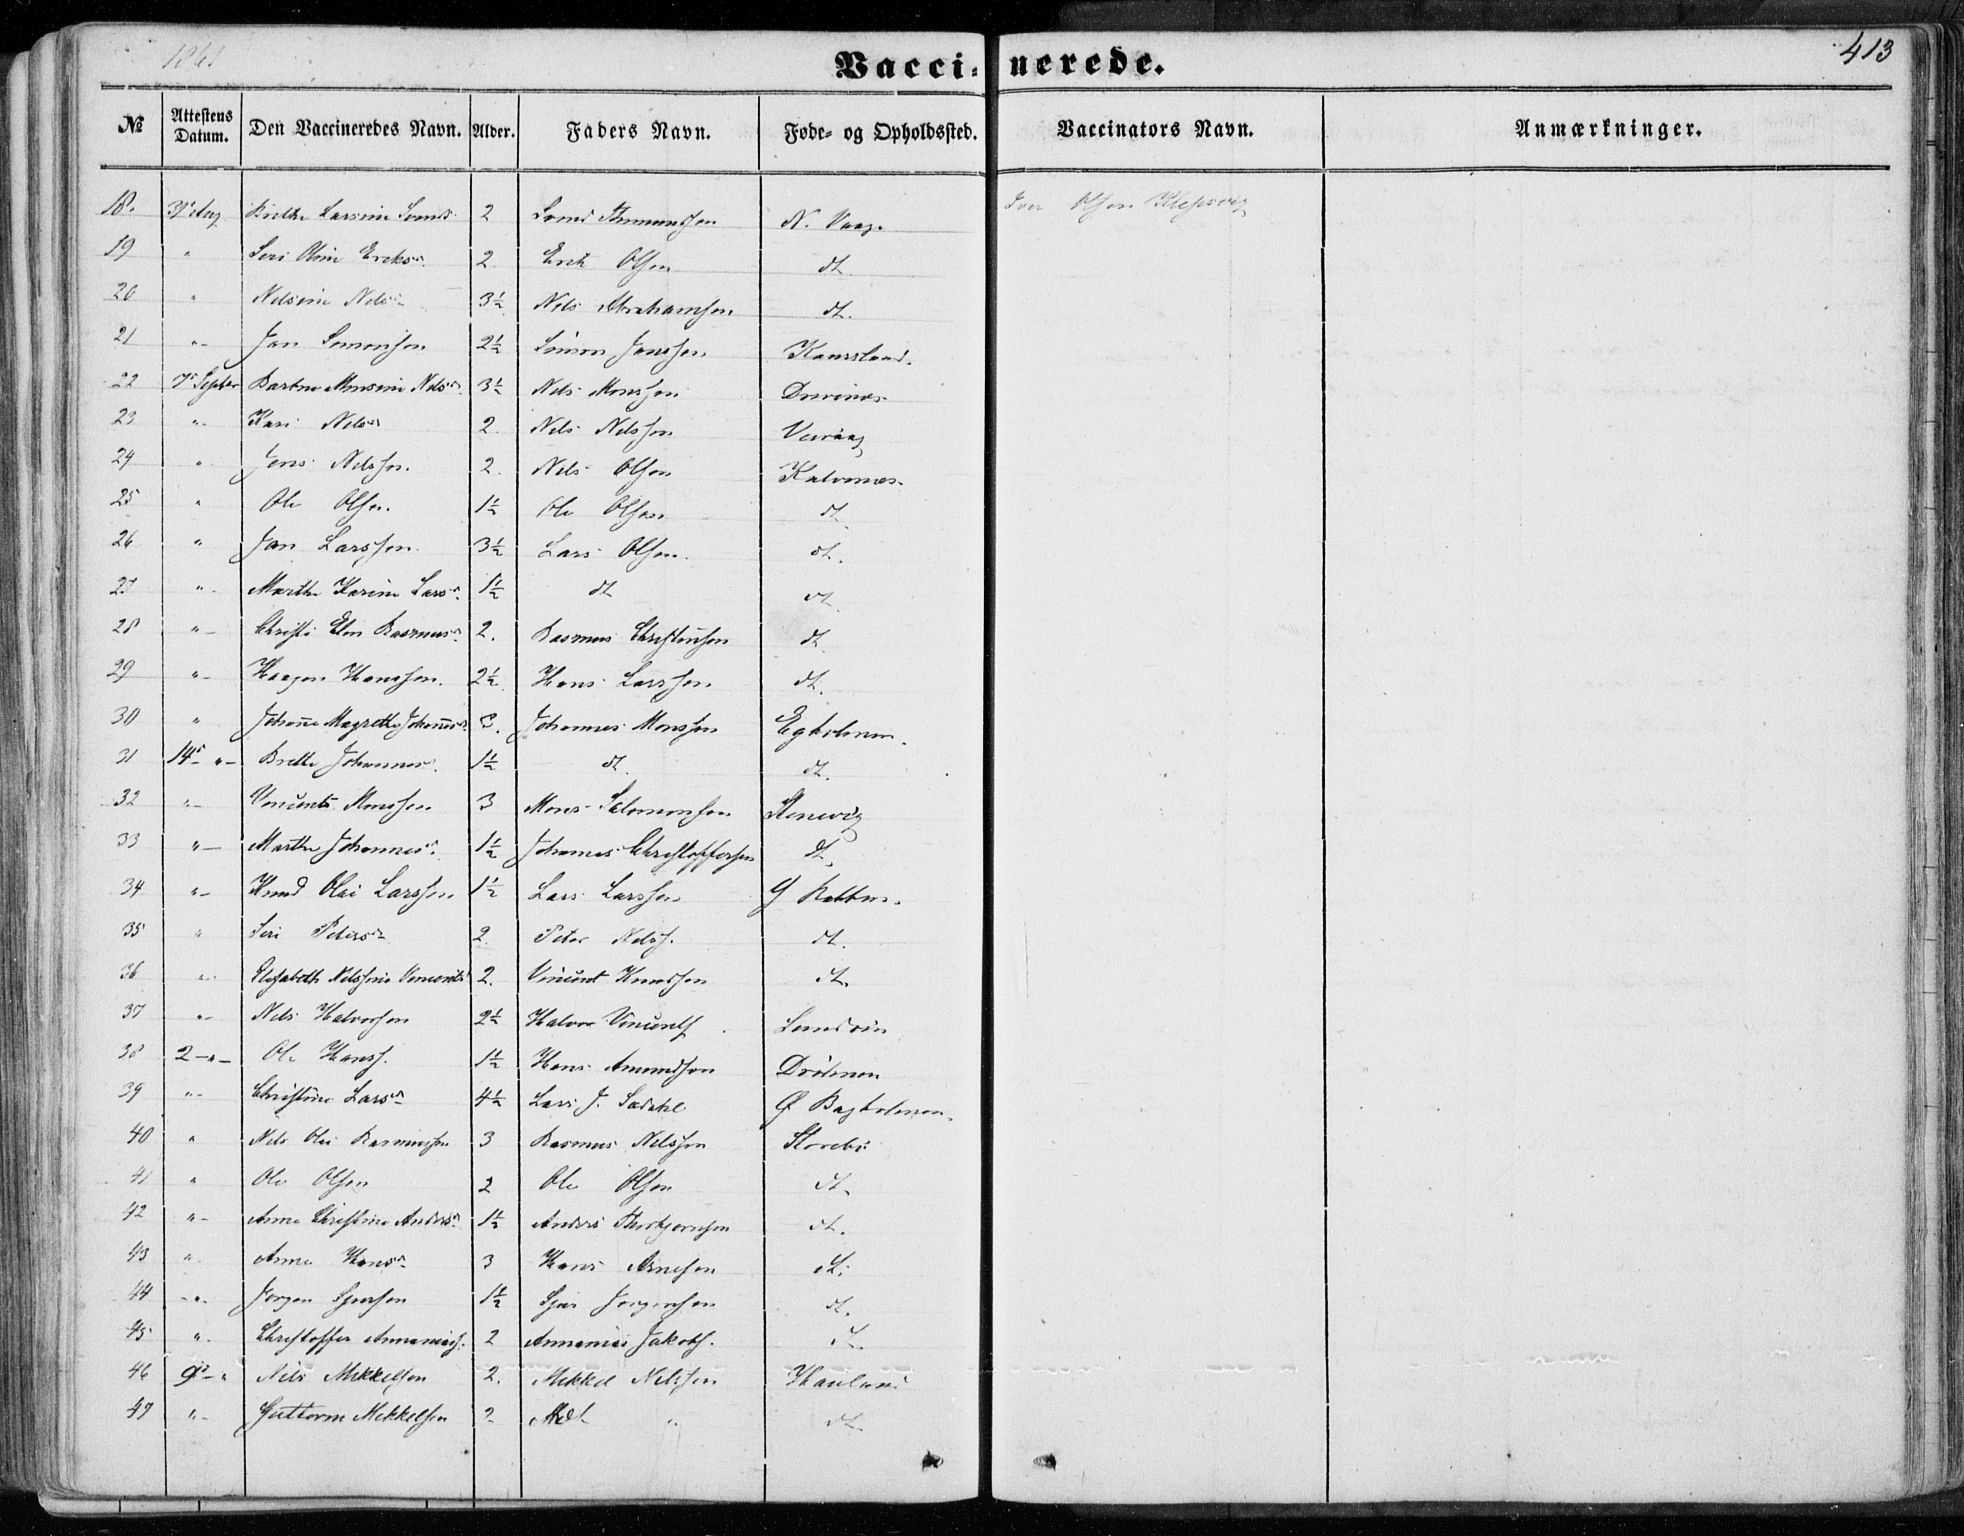 1861
Vaccinerede.
413
№ Attestens Datum. Den Vaccineredes Navn. Alder. Faders Navn. Føde- og Opholdssted. Vaccinators Navn. Anmærkninger.
18. Birthe Larsine 2 N. Vaage Olsen Klepsvig
19 " Seri Oline Ericksd. 2. Erik Olsen dt
20 " Nilsine Nilsd. 3½ Nils Abrahamsen dt.
21 " Jan Simonsen 2½ Simon Janssen
22 7de Septbr Monsine Nilsd. 3½ Nils Monssen
23 " Kari Nilsd 2. Nils Nilssen
24 " Jens Nilssen. 2. Nils Olsen Kalvenes.
25 " Ole Olsen. 1½ Ole Olsen dt.
26 " Jan Larssen. 3½ Lars Olsen. dt.
27 " Marthe Karine Larsd. 1½ dt dt.
28 " Christi Elen Rasmusd. 2. Rasmus Christensen dt.
29 " Haagen Hanssen. 2½ Hans Larssen dt.
30 " Johanne Magrethe Johannesd. Johannes Monssen Egholmen.
31 14de " Brethe Johannesd. 1½ dt. dt.
32 " Vincents Monssen 3 Mons Salomonsen Stenevig
33 " Marthe Johannesd. 1½ Johannes Christoffersen dt.
34 " Knud Olai Larssen 1½ Lars Larssen
35 " Seri Petersd. 2. Peter Nilss. dt.
36 " Elisabeth Nilssine Vincents 2. Vincent Knudsen dt.
37 " Nils Halvorsen 2½ Halvor Vincents
38 2 " Ole Hanss. 1½ Hans Amundsen
39 " Christine Larsd. 4½ Lars J. Ø Bagholmen.
40 " Nils Olai Rasmussen 3 Rasmus Nilssen Storebø
41 " Ole Olsen 2 Ole Olsen dt.
42 " Anne Christine Andersd. 1½ Anders Thorbjørnsen dt.
43 " Anne Hansd. 3 Hans Arnesen dt.
44 " Jørgen Sjursen 1½ Sjur Jørgensen dt.
45 " Christoffer Annaniass. 2 Annanias Jakobs. dt.
46 9de " Nils Mikkelsen 2. Mikkel Nilssen Haukanes
47 " Guttorm Mikkelsen 2 dt " dt.